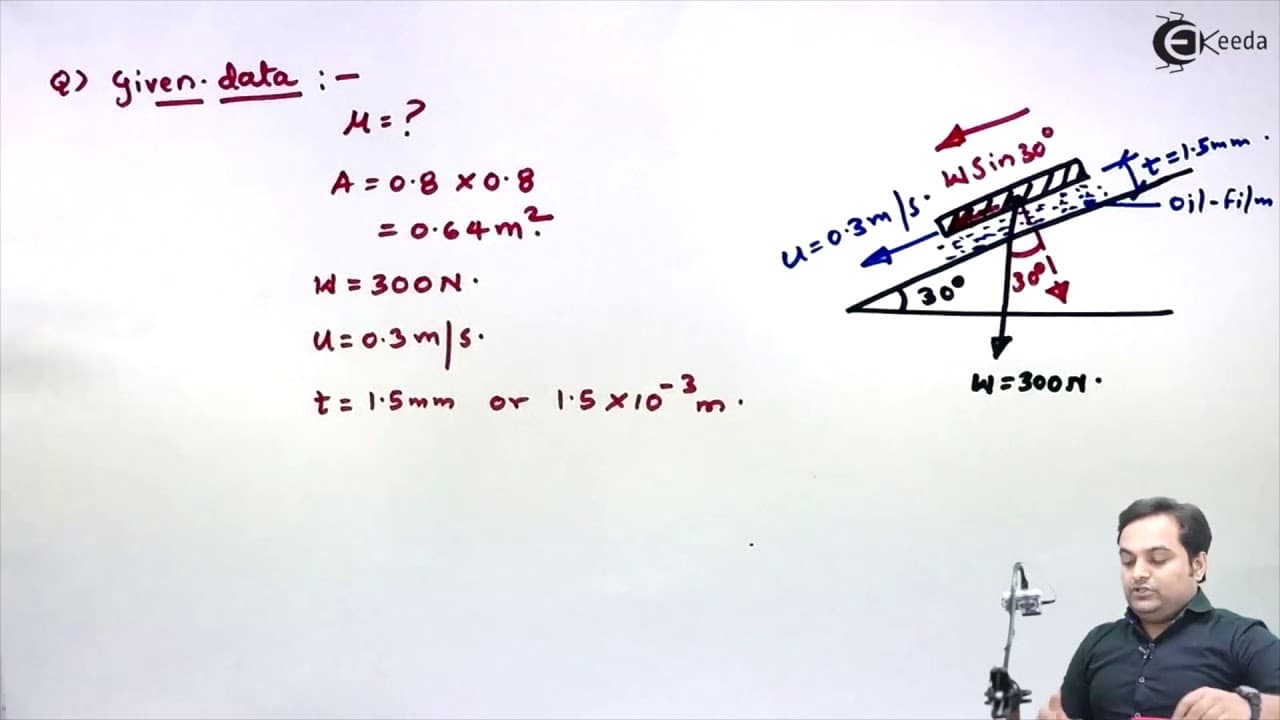 EKeeda
Q) Given data :-
μ = ?
A = 0.8 × 0.8
= 0.64 m².
W = 300 N.
u = 0.3 m/s.
t = 1.5 mm or 1.5 × 10⁻³ m.
W Sin 30°
t = 1.5 mm.
u = 0.3 m/s.
oil-film
30°
30°
W = 300 N.